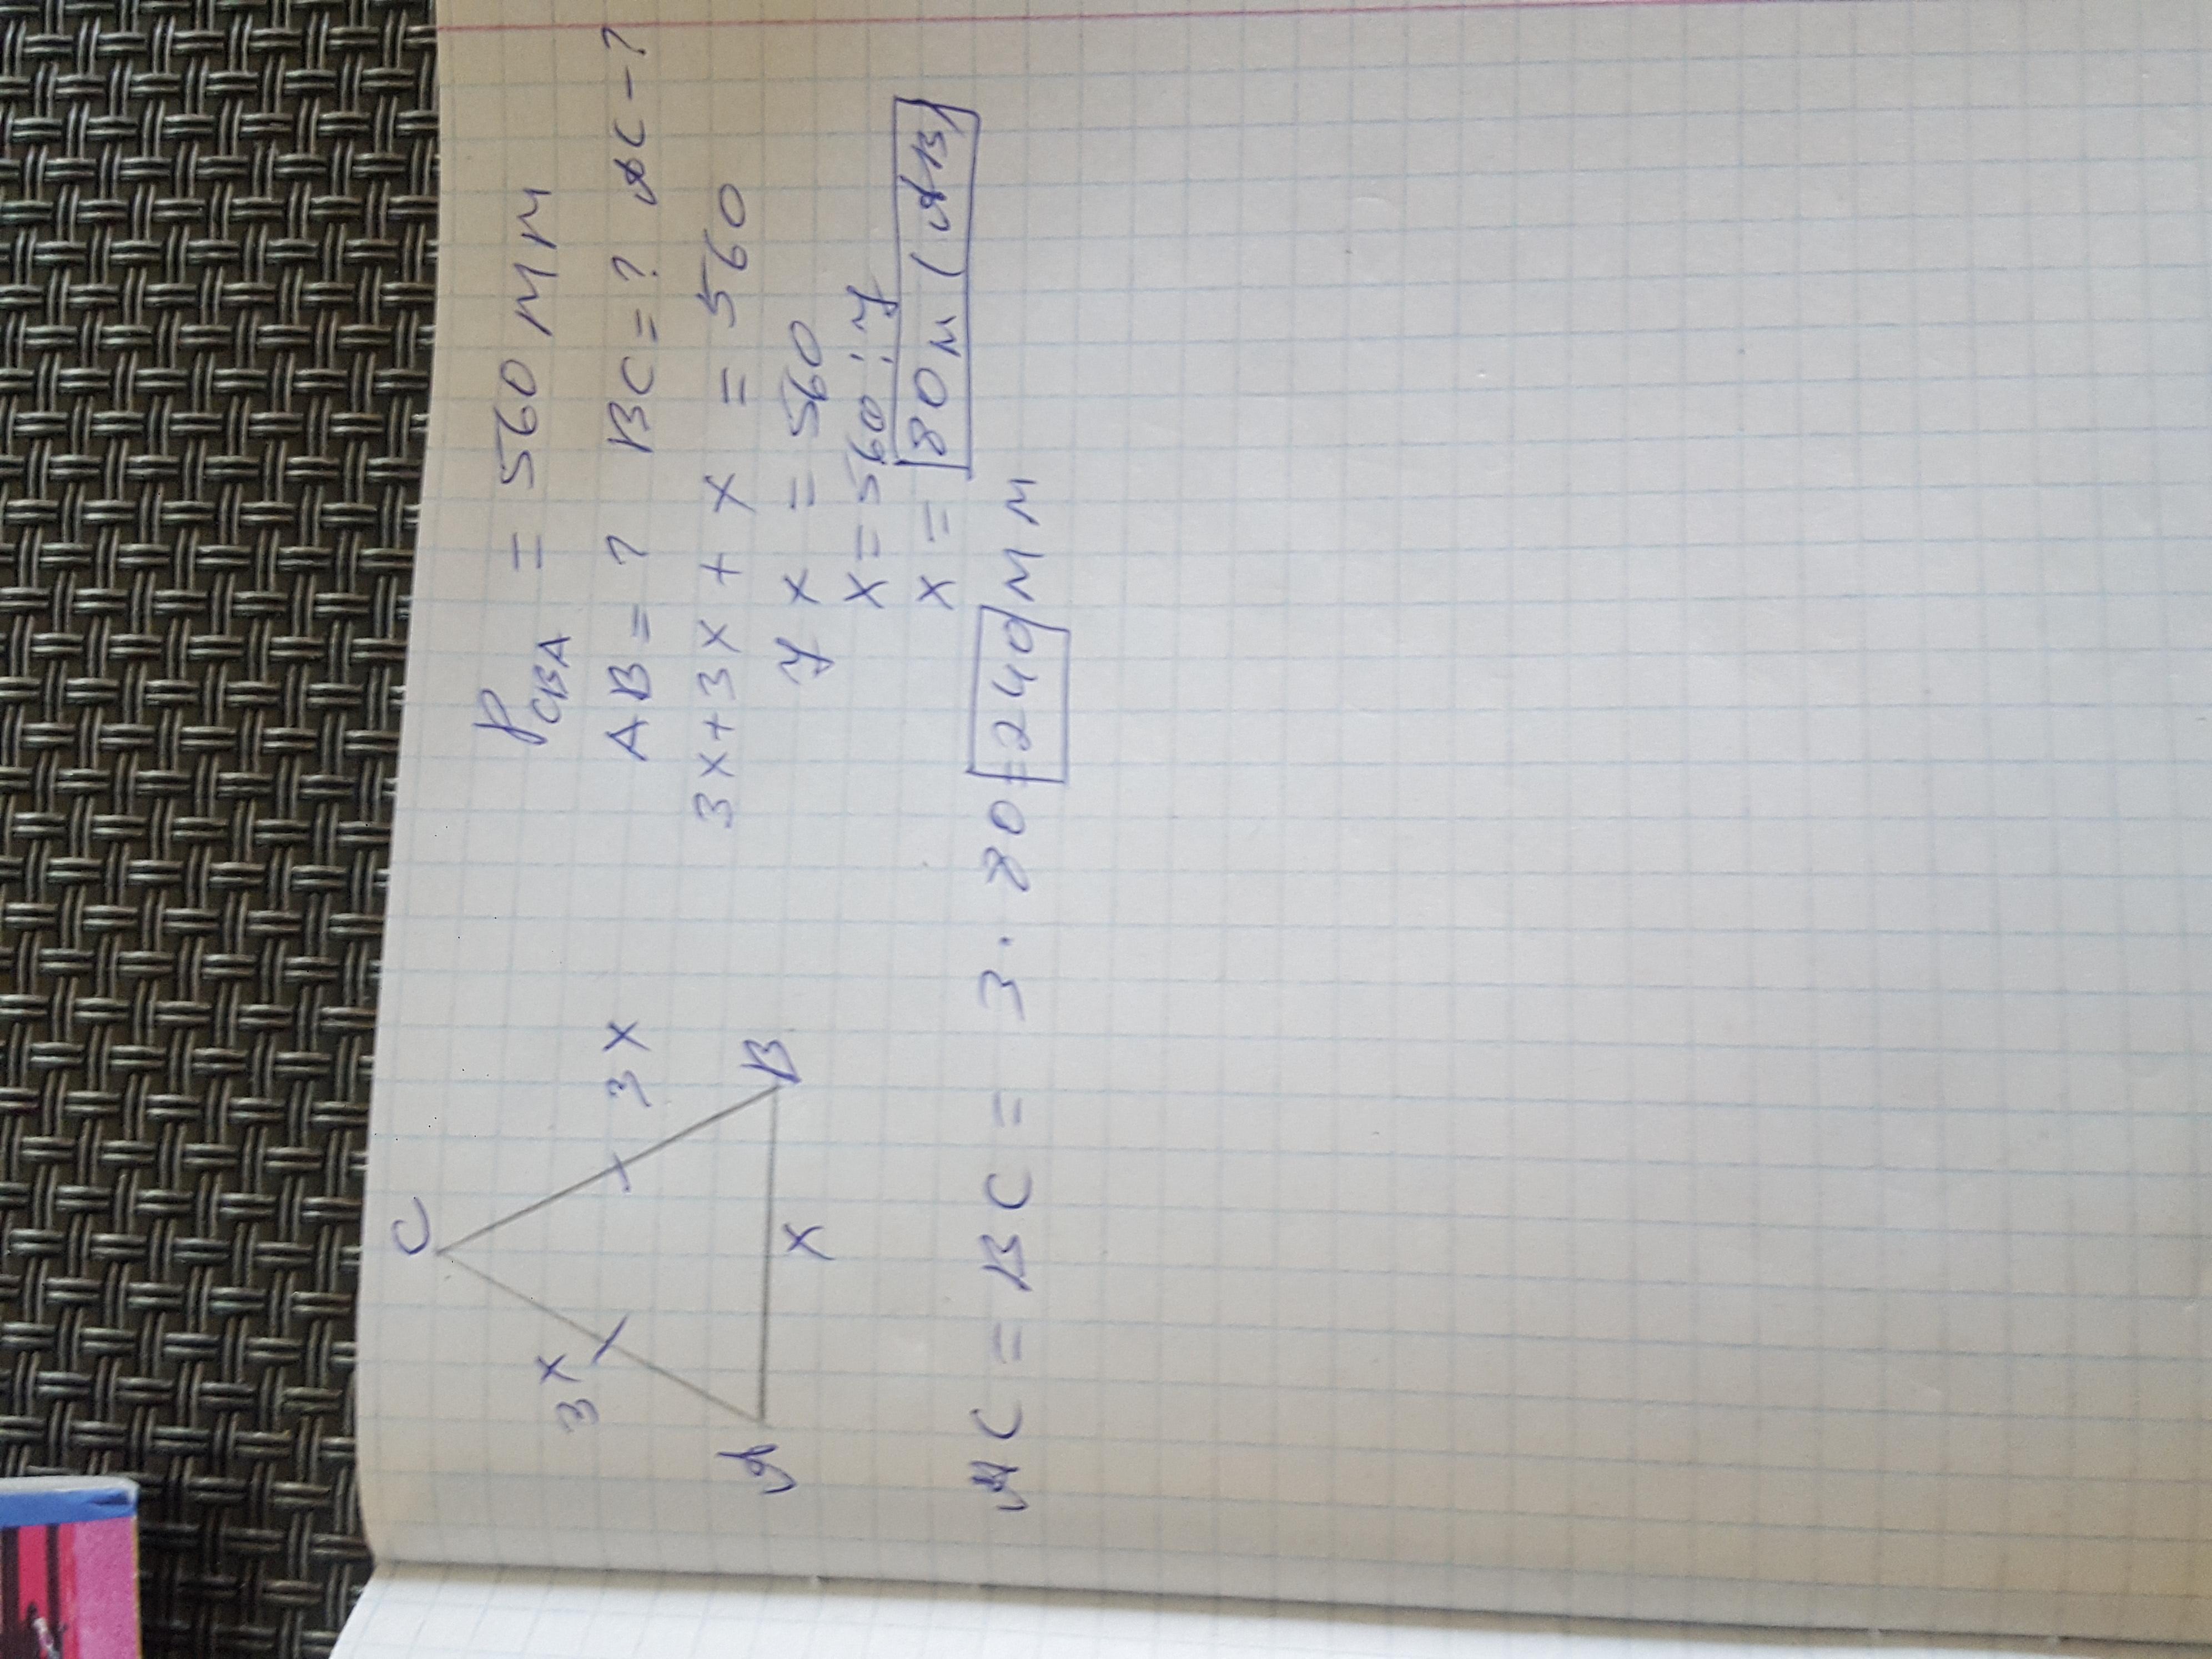 C
3x
3x
A
B
x
P CBA = 560 мм
AB = ? BC = ? AC - ?
3x+3x + x = 560
7 x = 560
x = 560 : 7
x = 80 м (AB)
AC = BC = 3 · 80 = 240 мм